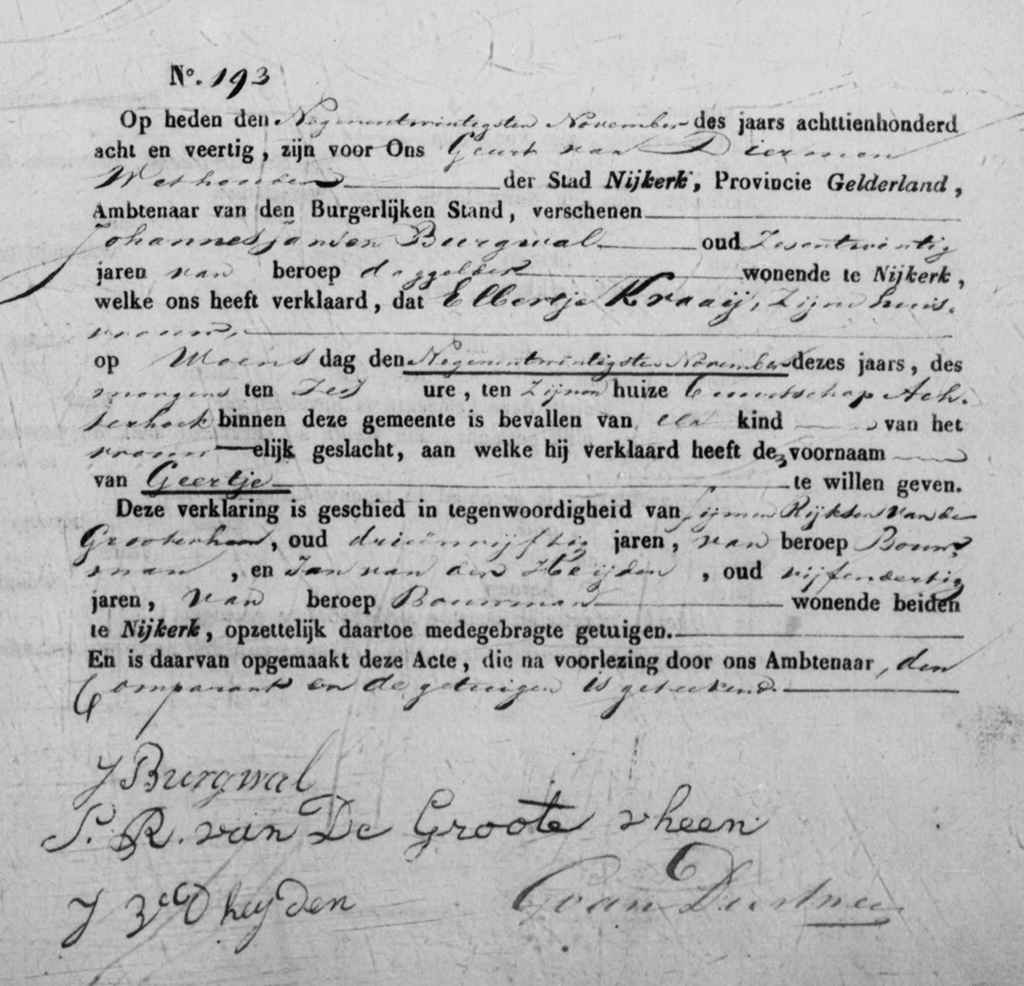 No. 193
Op heden den Negenentwintigsten November des jaars achttienhonderd
acht en veertig, zijn voor Ons Geurt van Diermen
Wethouder der Stad Nijkerk, Provincie Gelderland,
Ambtenaar van den Burgerlijken Stand, verschenen
Johannes jansen Burgwal oud Zesentwintig
jaren van beroep daggelder wonende te Nijkerk,
welke ons heeft verklaard, dat Elbertje Kraaij, Zijne huis-
vrouw,
op Woens dag den Negenentwintigsten November dezes jaars, des
morgens ten Zes ure, ten Zijnen huize Buurtschap Ach-
terhoek binnen deze gemeente is bevallen van een kind van het
vrouwelijk geslacht, aan welke hij verklaard heeft de voornaam
van Geertje te willen geven.
Deze verklaring is geschied in tegenwoordigheid van Sijmen Rijksen van de
Grooterheen, oud drieënvijftig jaren, van beroep Bouw-
man, en Jan van den Heijden, oud vijfendertig
jaren, van beroep Bouwman wonende beiden
te Nijkerk, opzettelijk daartoe medegebragte getuigen.
En is daarvan opgemaakt deze Acte, die na voorlezing door ons Ambtenaar, den
Comparant en de getuigen is geteekend.
J Burgwal
S. R. van De Groote rheen
J vd heyden
G van Diermen